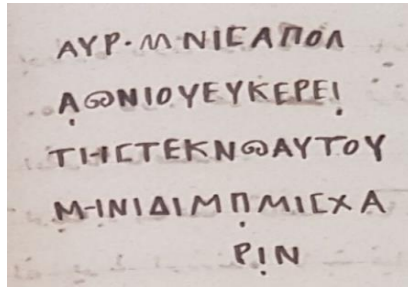 ΑΥΡ·ΜΝΙϹΑΠΟΛ
ΛΩΝΙΟΥΕΥΚΕΡΕΙ
ΤΗϹΤΕΚΝΩΑΥΤΟΥ
ΜΗΝΙΔΙΜΠΜΙϹΧΑ
ΡΙΝ